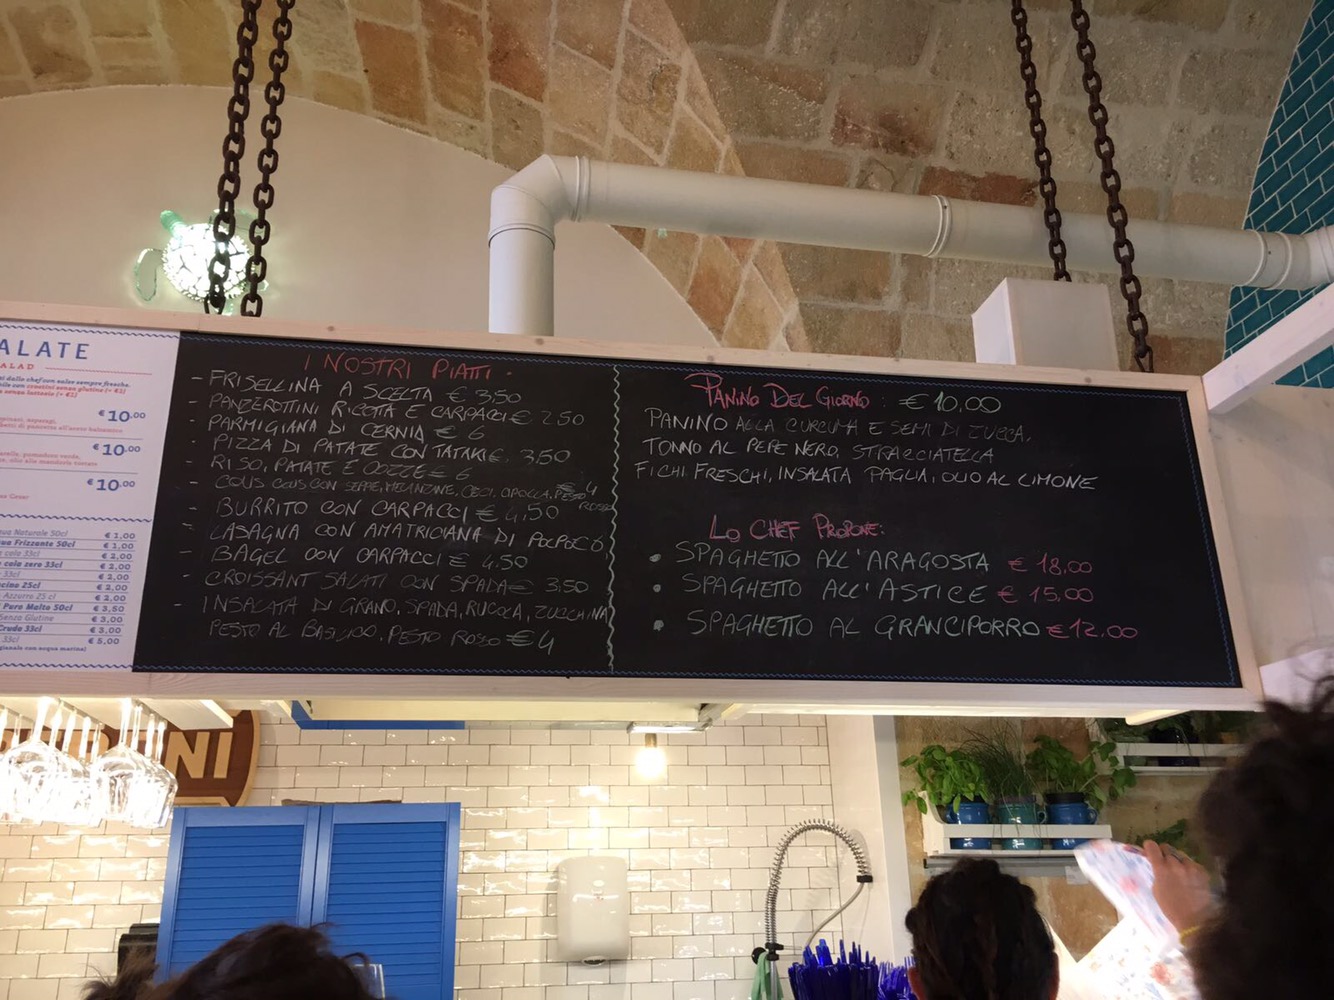 ALATE
SALAD
€ 10,00
€ 10,00
€ 10,00
Naturale 50cl € 1,00
Frizzante 50cl € 1,00
cola 33cl € 2,00
cola zero 33cl € 2,00
33cl € 2,00
25cl € 2,00
Azzurro 25 cl € 2,00
Puro Malto 50cl € 3,50
Senza Glutine € 3,00
Cruda 33cl € 3,00
33cl € 5,00
I NOSTRI PIATTI
- FRISELLINA A SCELTA € 3,50
- PANZEROTTINI RICOTTA E CARPACCI € 2,50
- PARMIGIANA DI CERNIA € 6
- PIZZA DI PATATE CON TATAKI € 3,50
- RISO, PATATE E COZZE € 6
- COUS COUS CON SEPPIE, MELANZANE, CECI, CIPOLLA, PESTO ROSSO € 4
- BURRITO CON CARPACCI € 4,50
- LASAGNA CON AMATRICIANA DI POLPO € 6
- BAGEL CON CARPACCI € 4,50
- CROISSANT SALATI CON SPADA € 3,50
- INSALATA DI GRANO, SPADA, RUCOLA, ZUCCHINA
PESTO AL BASILICO, PESTO ROSSO € 4
PANINO DEL GIORNO: € 10,00
PANINO ALLA CURCUMA E SEMI DI ZUCCA,
TONNO AL PEPE NERO, STRACCIATELLA
FICHI FRESCHI, INSALATA PAGLIA, OLIO AL LIMONE
LO CHEF PROPONE:
• SPAGHETTO ALL'ARAGOSTA € 18,00
• SPAGHETTO ALL'ASTICE € 15,00
• SPAGHETTO AL GRANCIPORRO € 12,00
NI